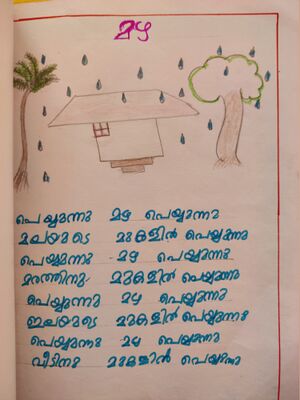 മഴ
പെയ്യുന്നു മഴ പെയ്യുന്നു
മലയുടെ മുകളിൽ പെയ്യുന്നു
പെയ്യുന്നു മഴ പെയ്യുന്നു
മരത്തിനു മുകളിൽ പെയ്യുന്നു
പെയ്യുന്നു മഴ പെയ്യുന്നു
ഇലയുടെ മുകളിൽ പെയ്യുന്നു
പെയ്യുന്നു മഴ പെയ്യുന്നു
വീടിനു മുകളിൽ പെയ്യുന്നു